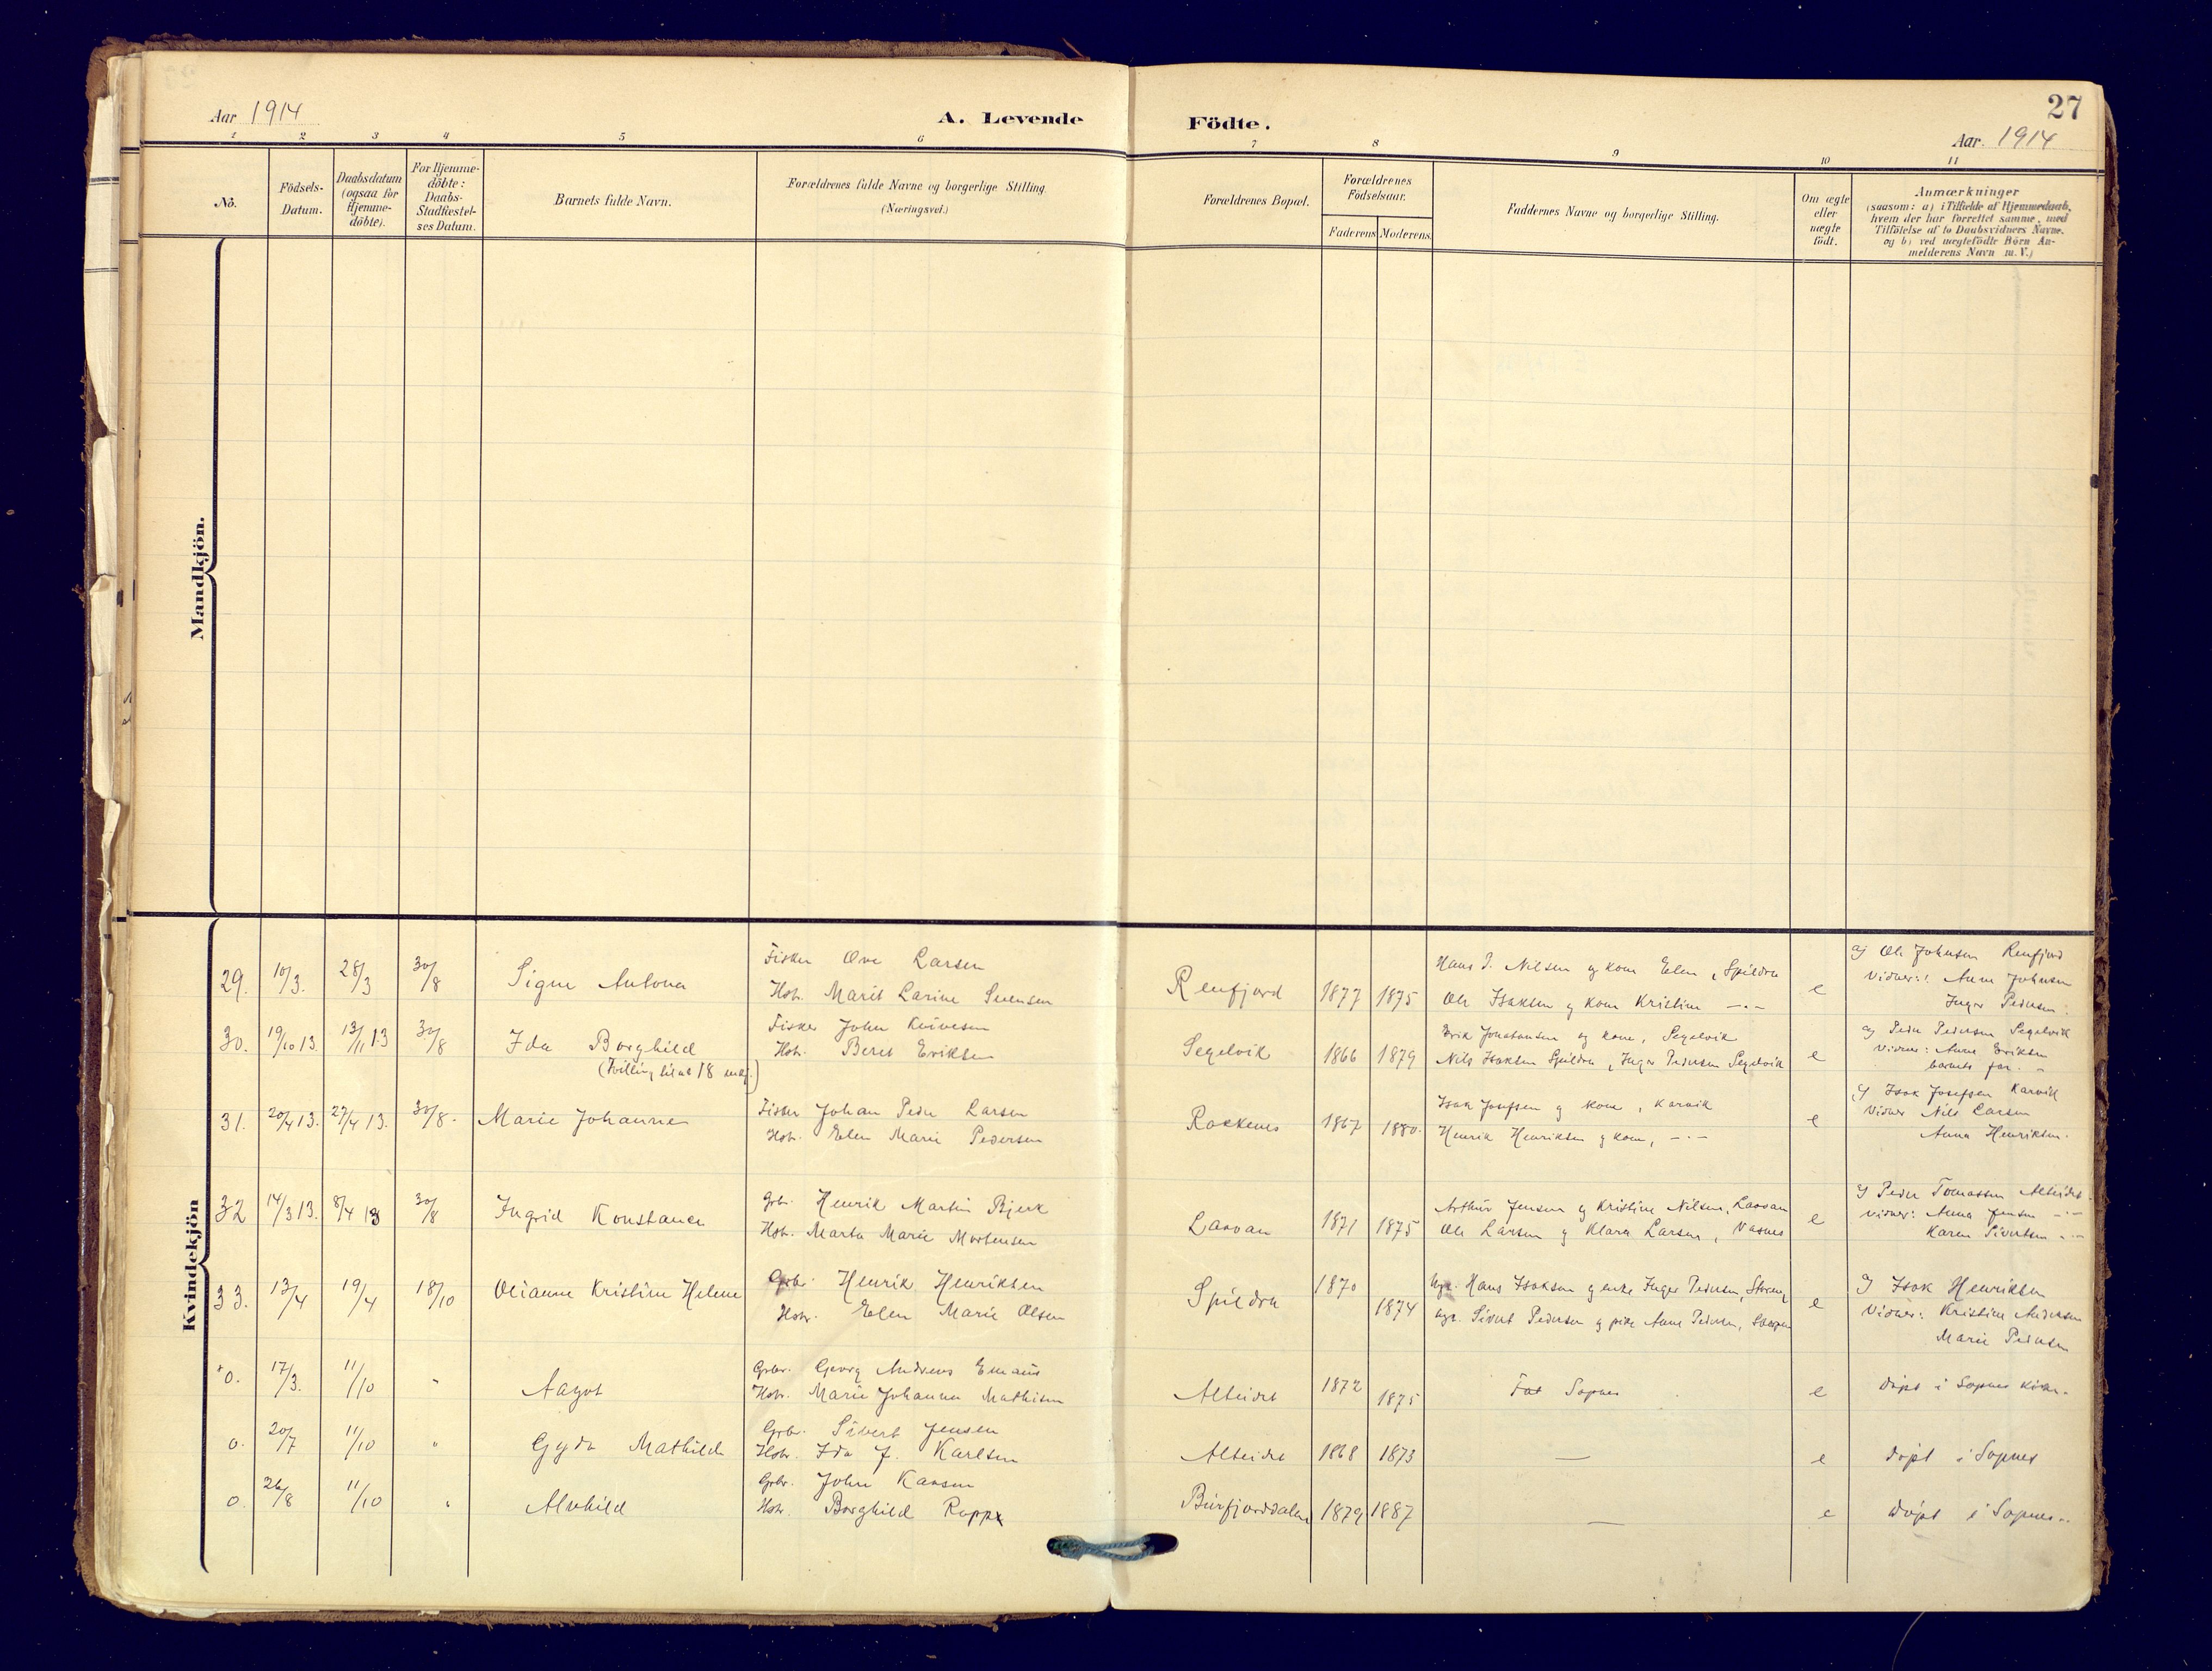 27
Aar 1914
A. Levende
Födte.
Aar 1914
1 2 3 4 5 6 7 8 9 10 11
No.
Födsels-
Datum.
Daabsdatum
(ogsaa for
Hjemme-
döbte).
For Hjemme-
döbte:
Daabs-
Stadfæstel-
ses Datum.
Barnets fulde Navn.
Forældrenes fulde Navne og borgerlige Stilling.
(Næringsvei.)
Forældrenes Bopæl.
Forældrenes
Födselsaar.
Faderens Moderens
Faddernes Navne og borgerlige Stilling.
Om ægte
eller
uægte
födt.
Anmærkninger
(saasom: a) i Tilfælde af Hjemmedaab,
hvem der har forrettet samme, med
Tilföielse af to Daabsvidners Navne.
og b) ved uægtefödte Börn An-
melderens Navn m.V.)
Mandkjön.
Kvindekjön
29. 10/3. 28/3 30/8 Signe Antona
Fisker Ove Larsen
Hstr. Marit Larine Svensen
Renfjord 1877 1875
Hans P. Nilsen og kone Elen, Spildra
Ole Isaksen og kone Kristine —·—
e
Ole Johnsen Renfjord
Vidner: Anne Johnsen
Inger Pedersen
30. 19/10 13. 13/11 13 30/8 Ida Borghild
Fisker John
Hstr. Beret Eriksen
Segelvik 1866 1879
Erik Jonatansen og kone, Segelvik
Nils Isaksen Spildra, Inger Pedersen Segelvik
e
Peder Pedersen Segelvik
Vidner: Anne Eriksen
barnets far. –
31. 20/4 13. 27/4 13. 30/8. Marie Johanne
Fisker Johan Peder Larsen
Hstr. Elen Marie Pedersen
1867 1880.
Isak Josefsen og kone, Karvik
Henrik Henriksen og kone, —·—
e
Isak Josefsen Karvik
Vidner Nils Larsen
Anna Henriksen.
32 14/3 13. 8/4 13 30/8 Ingrid Konstance
Gbr. Henrik Martin Bjerk
Hstr. Marta Marie Mortensen
Laavan 1871 1875
Arthur Jensen og Kristine Nilsen, Laavan
Ole Larsen og Klara Larsen, Vasnes
e
Peder Tomassen Alteidet
Vidner: Anna Jensen —·—
Karen Sivertsen —·—
33. 13/4 19/4 18/10 Olianne Kristine Helene
Gbr. Henrik Henriksen
Hstr. Elen Marie Olsen
Spildra 1870 1874
Ugk. Hans Isaksen og enke Inger Pedersen,
ugk. Sivert Pedersen og pike Anne Pedersen,
e
Isak Henriksen
Vidner: Kristine Andersen
Marie Pedersen
0. 17/3. 11/10 " Aagot
Gbr. Georg Andreas Emaus
Hstr. Marie Johanna Mathisen
Alteidet 1872 1875
Sopnes
e
døpt i Sopnes
0. 20/7 11/10 " Gyda Mathilde
Gbr. Sivert Jensen
Hstr. Ida J. Karlsen
Alteidet 1868 1873
—
e
døpt i Sopnes
0. 26/8 11/10 " Alvhild
Gbr. John Karsen
Hstr. Borghild Rapp
Burfjorddalen 1879 1887
—
e
døpt i Sopnes.